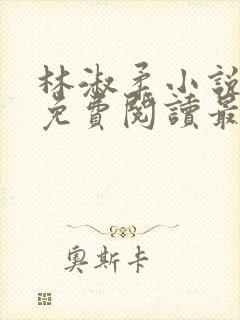 林淑柔小說
免費閱讀最
奧斯卡